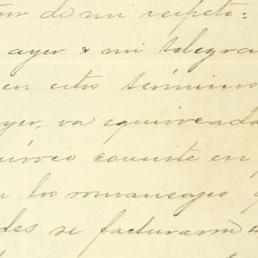 de mi respeto:
ayer & mi telegra
en estos términos
yer, va equivocada
uívoco consiste en
los romanceajes
des se facturaron